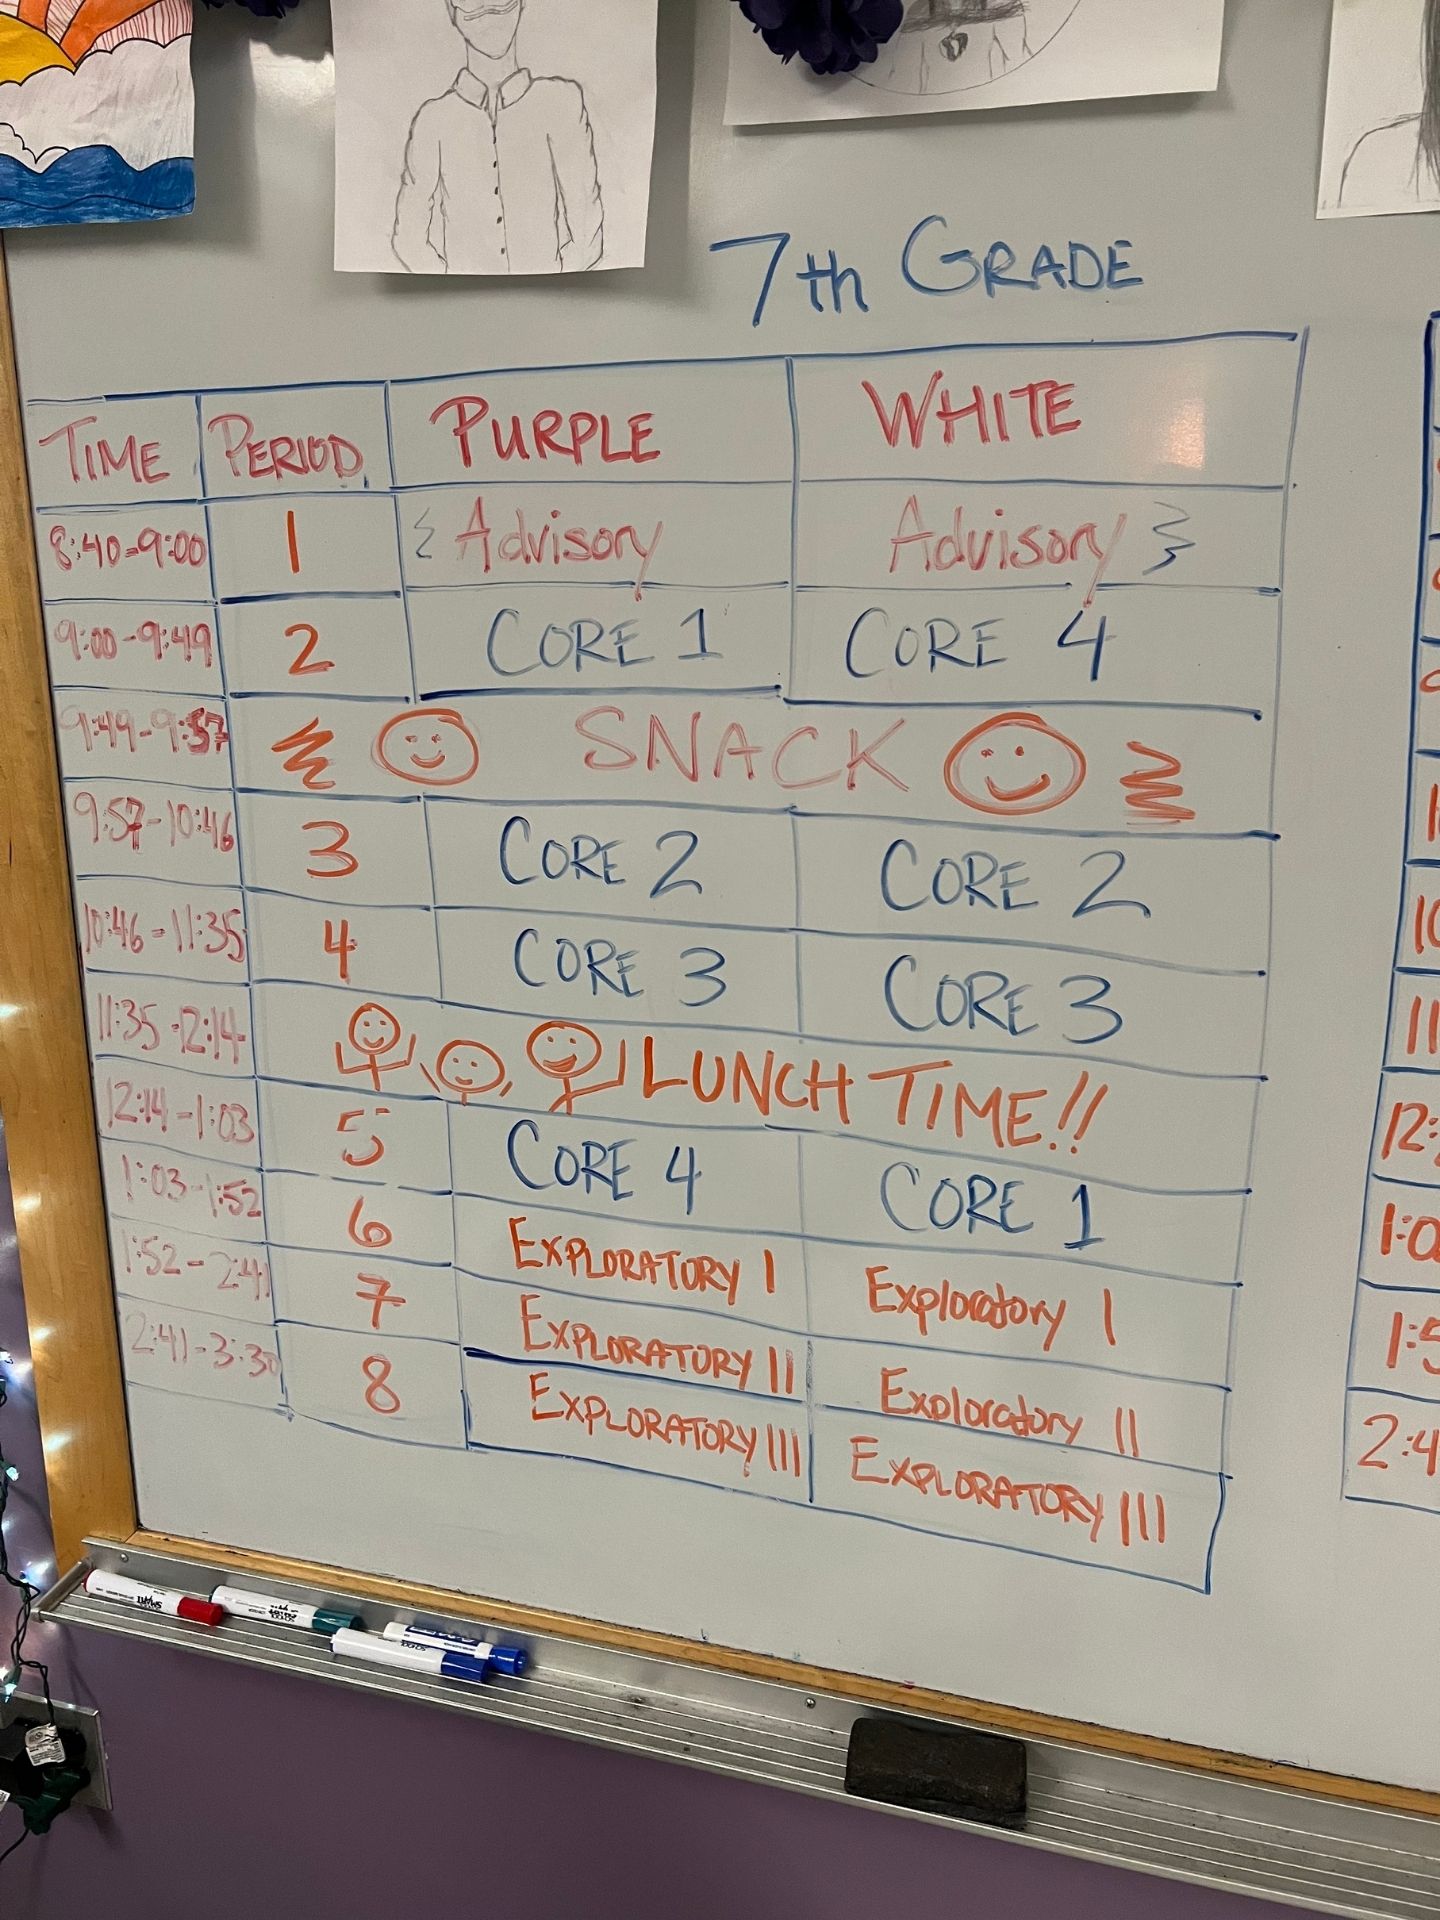 7th GRADE
TIME PERIOD PURPLE WHITE
8:40-9:00 1 Advisory Advisory
9:00-9:49 2 CORE 1 CORE 4
9:49-9:57 SNACK
9:57-10:46 3 CORE 2 CORE 2
10:46-11:35 4 CORE 3 CORE 3
11:35-12:14 LUNCH TIME!!
12:14-1:03 5 CORE 4 CORE 1
1:03-1:52 6 EXPLORATORY I Exploratory I
1:52-2:41 7 EXPLORATORY II Exploratory II
2:41-3:30 8 EXPLORATORY III EXPLORATORY III
10
11
12:
1:0
1:5
2:4